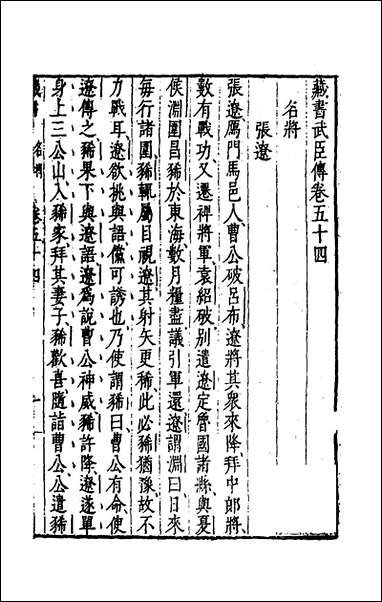 藏書武臣傳卷五十四
名將
張遼
張遼鴈門馬邑人曹公破呂布遼將其衆來降拜中郎將
數有戰功又遷禆將軍袁紹破別遣遼定魯國諸縣與夏
侯淵圍昌豨於東海數月糧盡議引軍還遼謂淵曰日來
每行諸圍豨輒屬目視遼其射矢更稀此必豨猶豫故不
力戰耳遼欲挑與語儻可誘也乃使謂豨曰曹公有命使
遼傳之豨果下與遼語遼爲說曹公神威豨許降遼遂單
身上三公山入豨家拜其妻子豨歡喜隨詣曹公公遣豨
藏書 名將 卷五十四